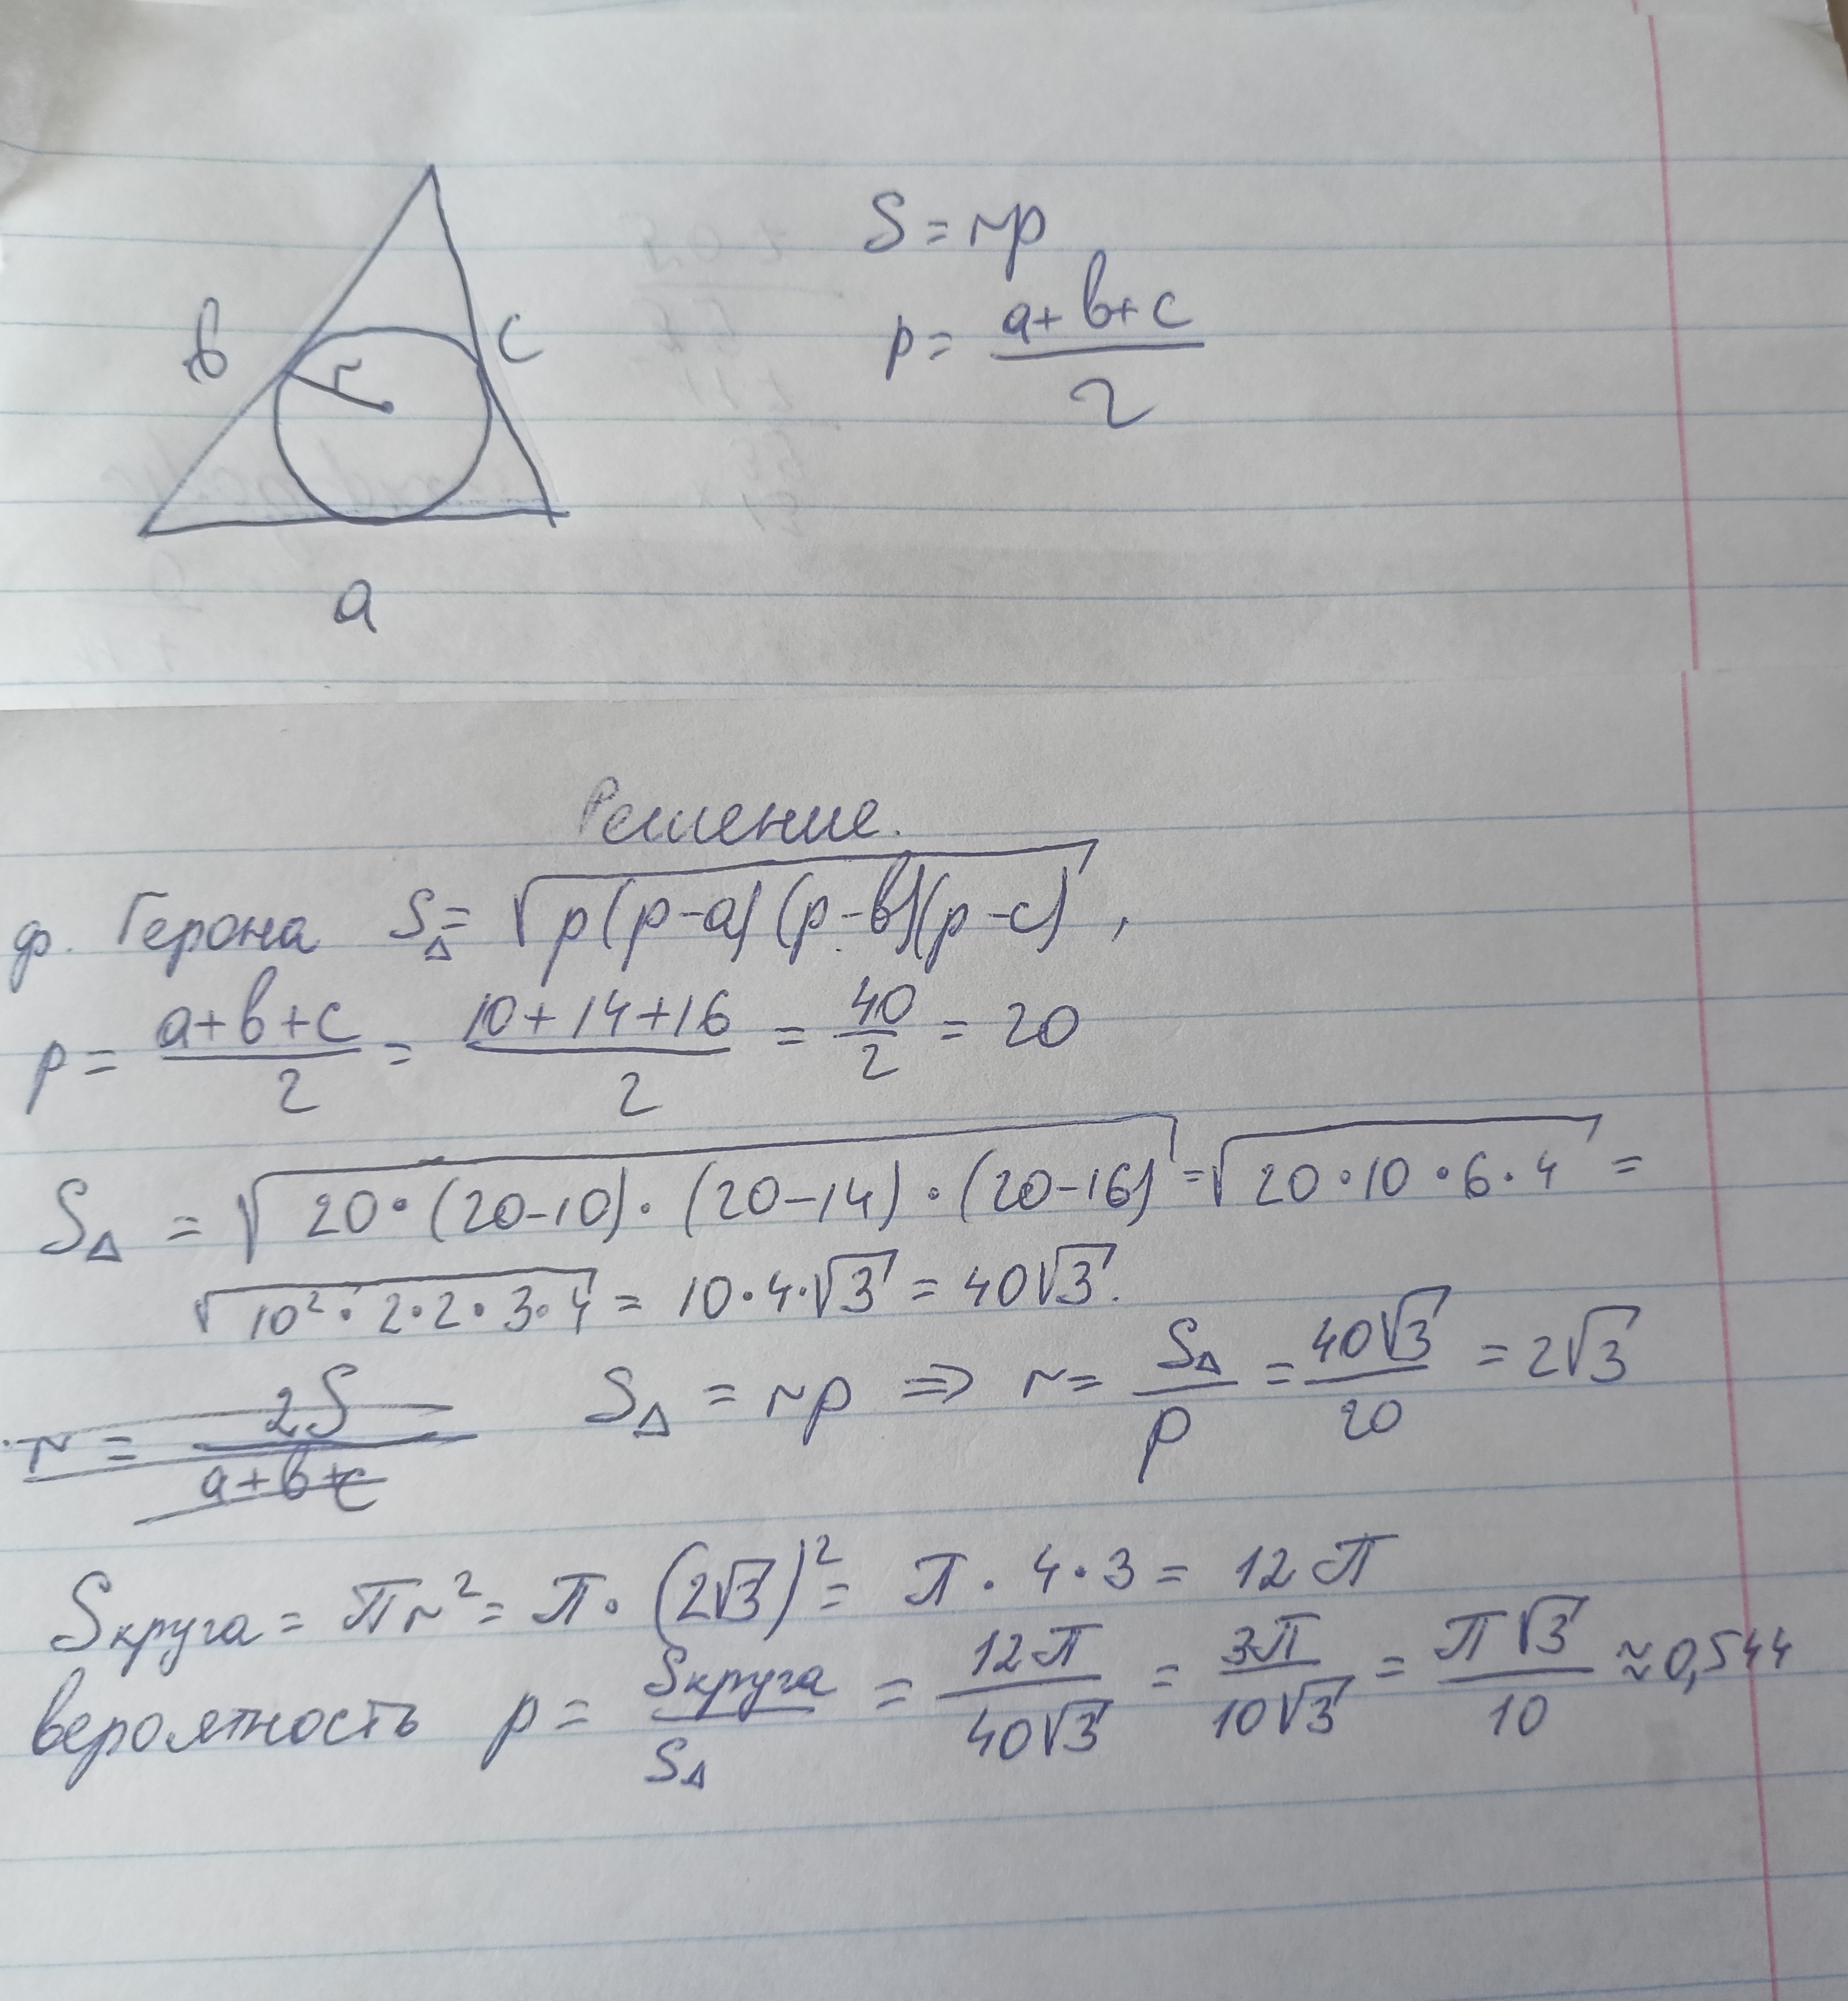 S = rp
p = (a+b+c)/2
b
c
r
a
Решение.
ф. Герона S△ = √(p(p-a)(p-b)(p-c)),
p = (a+b+c)/2 = (10+14+16)/2 = 40/2 = 20
S△ = √(20·(20-10)·(20-14)·(20-16)) = √(20·10·6·4) =
√(10²·2·2·3·4) = 10·4·√3 = 40√3.
r = 2S/(a+b+c) S△ = rp ⇒ r = S△/p = 40√3/20 = 2√3
Sкруга = πr² = π·(2√3)² = π·4·3 = 12π
вероятность p = Sкруга/S△ = 12π/(40√3) = 3π/(10√3) = π√3/10 ≈ 0,544